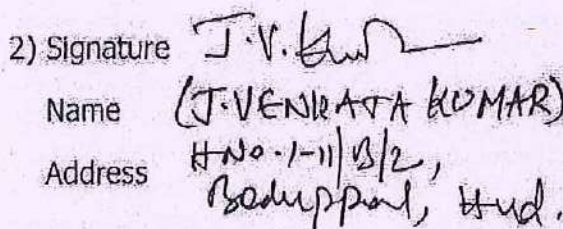 2) Signature J.V. Kum
Name (J.VENKATA KUMAR)
Address H.No.1-11/B/2,
Boduppal, Hyd.